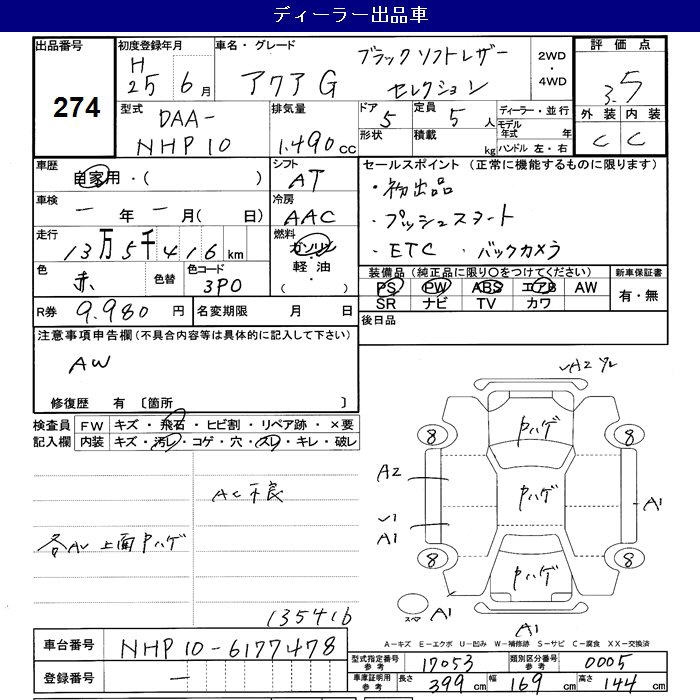 ディーラー出品車
出品番号 274
初度登録年月 H 25年 6月
車名・グレード アクア G ブラックソフトレザーセレクション
2WD・4WD
評価点 3.5
外装 C 内装 C
型式 DAA-NHP10
排気量 1.490cc
ドア 5 定員 5人
形状 積載 kg
ディーラー・並行
モデル年式 年
ハンドル 左・右
車歴 自家用・( )
シフト AT
セールスポイント (正常に機能するものに限ります)
・初出品
・プッシュスタート
・ETC ・バックカメラ
車検 ー年ー月( 日)
冷房 AAC
走行 13万5千416km
燃料 ガソリン・軽油・( )
色 赤 色替 色コード 3P0
装備品 (純正品に限り○をつけてください)
PS PW ABS エアB AW
SR ナビ TV カワ
新車保証書 有・無
R券 9.980円 名変期限 月 日
後日品
注意事項申告欄 (不具合内容等は具体的に記入して下さい)
AW
修復歴 有 〔箇所 〕
検査員記入欄 FW キズ・飛石・ヒビ割・リペア跡・×要
内装 キズ・汚レ・コゲ・穴・スレ・キレ・破レ
AC不良
各AW 上面Pハゲ
135416
8 8 8 8
Pハゲ
Pハゲ
Pハゲ
A2
A1
A1
A1
A1
スペア
A-キズ E-エクボ U-凹み W-補修跡 S-サビ C-腐食 XX-交換済
車台番号 NHP10-6177478
登録番号 ー
型式指定番号 参考 17053 類別区分番号 参考 0005
車庫証明用 参考 長さ 399cm 幅 169cm 高さ 144cm